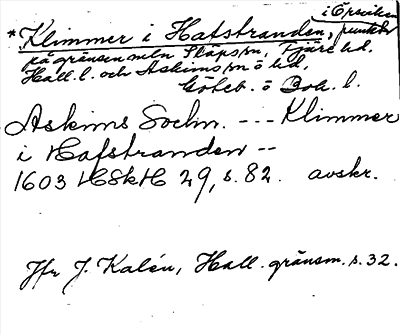 i Örsviken
*Klimmer i Hafstranden, punkt
på gränsen mln Släps sn, Fjäre hd,
Hall. l. och Askims sn o hd,
Göteb. o Boh. l.
Askims Sochn. --- Klimmer
i Hafstranden --
1603 HSkH 29, s. 82. avskr.
Jfr J. Kalén, Hall. gränsm. s. 32.